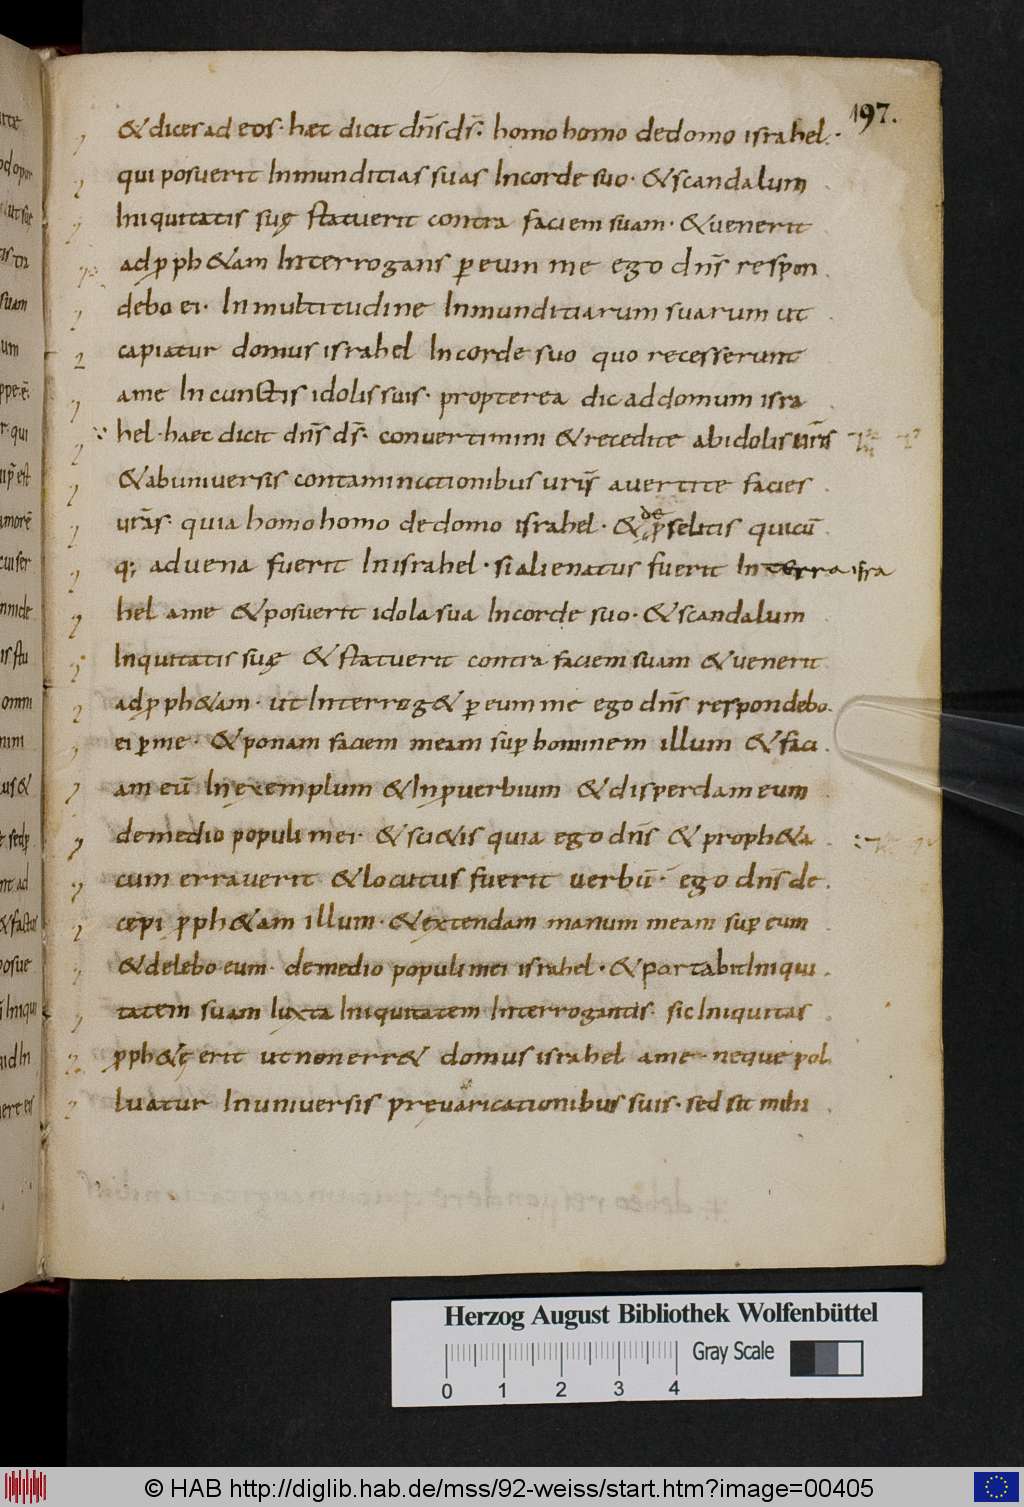 197.
& dices ad eos· haec dicit dn̄s ds̄· homo homo de domo israhel·
qui posuerit Inmunditias suas Incorde suo· & scandalum
Iniquitatis suę statuerit contra faciem suam· & uenerit
ad p̱ph&am Interrogans p̱ eum me ego dn̄s respon
debo ei· In multitudine Inmunditiarum suarum ut
capiatur domus israhel Incorde suo quo recesserunt
ame In cunctis idolis suis· propterea dic ad domum isra
hel· haec dicit dn̄s ds̄· conuertimini & recedite ab idolis ur̄is
& ab uniuersis contaminationibus ur̄is auertite facies
ur̄as· quia homo homo de domo israhel· & de p̱selitis quicū
q; aduena fuerit In israhel· si alienatus fuerit In isra
hel ame & posuerit idola sua Incorde suo· & scandalum
Inquitatis suę & statuerit contra faciem suam & uenerit
ad p̱ph&am· ut Interrog& p̱ eum me ego dn̄s respondebo
ei p̱ me· & ponam faciem meam sup̱ hominem illum & faci
am eū In exemplum & In p̱uerbium & disperdam eum
de medio populi mei· & sci&is quia ego dn̄s & proph&a
cum errauerit & locutus fuerit uerbū· ego dn̄s de
cepi p̱ph&am illum· & extendam manum meam sup̱ eum
& delebo eum· de medio populi mei israhel· & portabit Iniqui
tatem suam Iuxta Iniquitatem Interrogantis· sic Iniquitas
p̱ph&ę erit ut non err& domus israhel ame· neque pol
luatur In uniuersis preuaricationibus suis· sed sit mihi
Herzog August Bibliothek Wolfenbüttel
Gray Scale
0 1 2 3 4
© HAB http://diglib.hab.de/mss/92-weiss/start.htm?image=00405